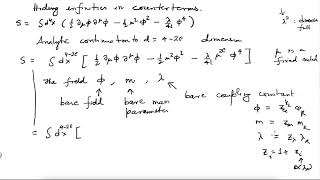 Hiding infinities in counterterms.
S = ∫d⁴x (½ ∂μφ ∂^μφ − ½ m²φ² − λ/4! φ⁴)
Analytic continuation to d = 4−2ε dimension
S = ∫ d^{4−2ε}x [½ ∂μφ ∂^μφ − ½ m²φ² − λ/4! μ^{2ε} φ⁴]
μ is a fixed scale
the field φ, m, λ
bare field
bare mass parameter
bare coupling constant
φ = z_φ^{½} φ_R
m = z_m m_R
λ = z_λ λ_R
z_i = 1 +
= ∫d^{4−2ε}x [